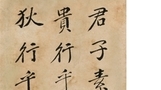 君子素
貴行乎
狄行乎